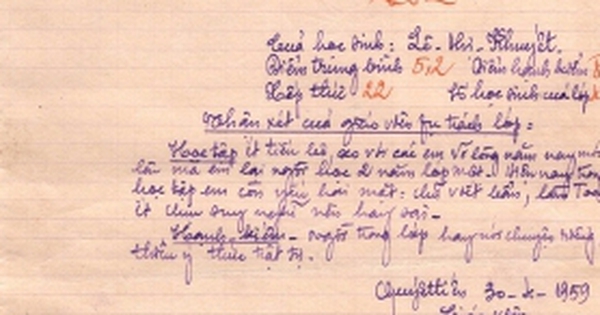 Của học sinh: Lê-Thị-Khuyết.
Điểm trung bình 5,2 Điểm hạnh kiểm
Xếp thứ 22 Số học sinh của lớp
Nhận xét của giáo viên phụ trách lớp:
Học tập ít tiến bộ, so với các em vỡ lòng năm nay mới
lên mà em lại người học 2 năm lớp một. Hiện nay trong
học tập em còn yếu hai mặt: chữ viết bẩn, làm Toán
ít chịu suy nghĩ nên hay sai-
Hạnh kiểm- ngồi trong lớp hay nói chuyện riêng,
thiếu ý thức trật tự.
Quyết tiến 30-X-1959
Giáo viên